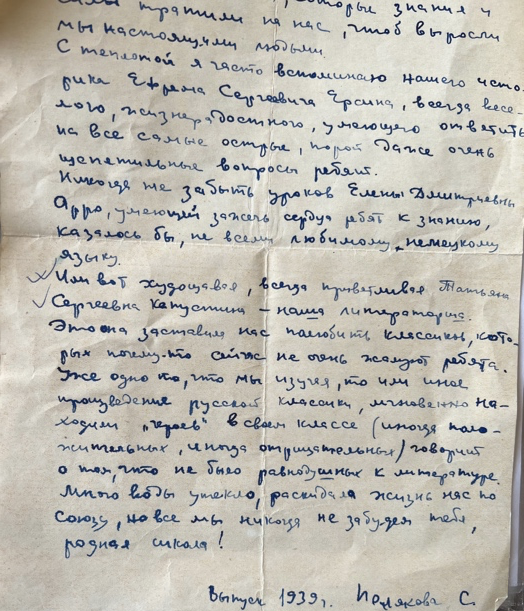 силы тратили на нас, чтоб выросли
мы настоящими людьми.
С теплотой я часто вспоминаю нашего исто-
рика Ефрема Сергеевича Ерсина, всегда весе-
лого, жизнерадостного, умеющего ответить
на все самые острые, порой даже очень
щепетильные вопросы ребят.
Никогда не забыть уроков Елены Дмитриевны
Арро, умеющей зажечь сердца ребят к знанию,
казалось бы, не всеми любимому, немецкому
языку.
Или вот худощавая, всегда приветливая Татьяна
Сергеевна Капустина – наша литераторша.
Это она заставила нас полюбить классиков, кото-
рых почему-то сейчас не очень жалуют ребята.
Уже одно то, что мы изучая, то или иное
произведение русской классики, мгновенно на-
ходили „героев" в своем классе (иногда поло-
жительных, иногда отрицательных) говорит
о том, что не было равнодушных к литературе.
Много воды утекло, раскидала жизнь нас по
Союзу, но все мы никогда не забудем тебя,
родная школа!
Выпуск 1939 г. Полякова С.